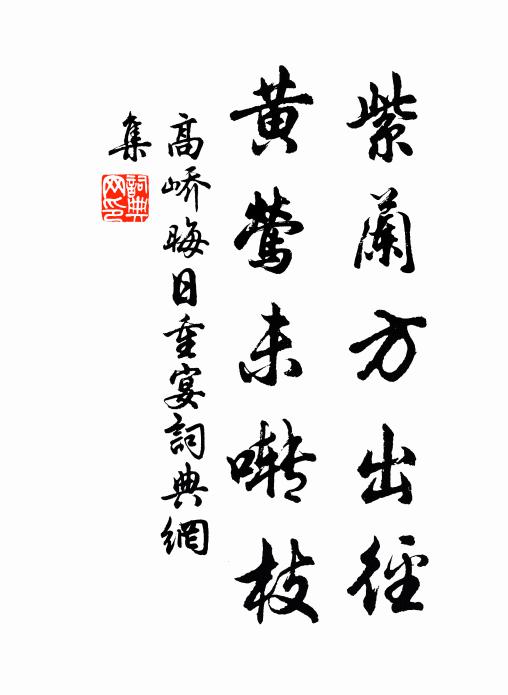 紫蘭方出徑
黃鶯未囀枝
高嶠晦日重宴詞典網
集
詞典
网印